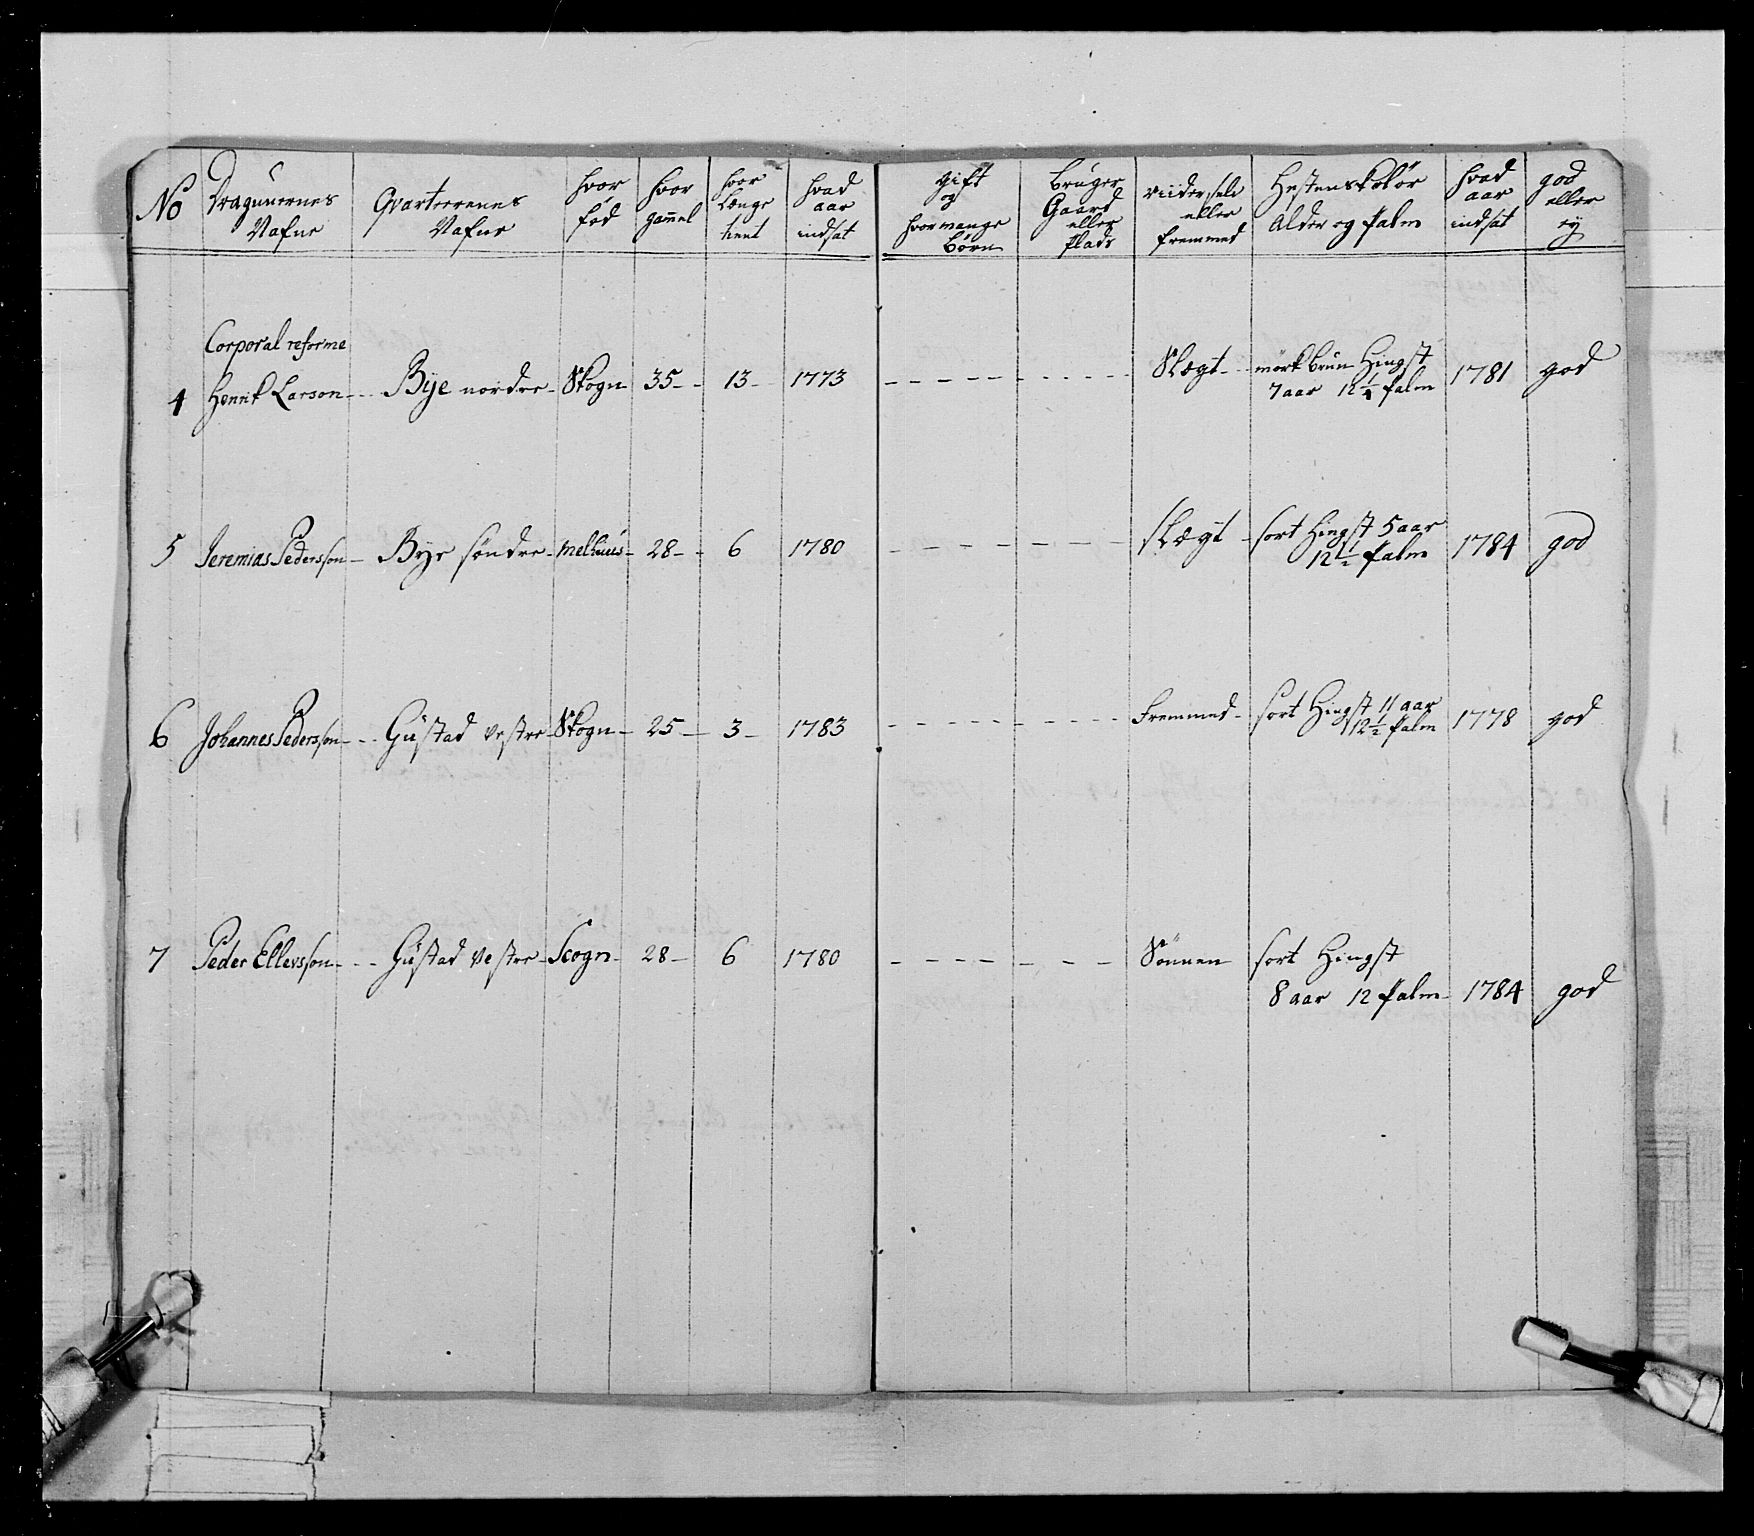 No | Dragunernes Nafne | Qvarteerenes Nafne | hvor fød | hvor gam̄el | hvor Længe tient | hvad aar indsat | gift og hvor mange Børn | Bruger Gaard eller Plads | Riider selv eller fremmed | Hestens Kolør Alder og Palm | hvad aar indsat | god eller ey
Corporal reforme
4 Henrik Larson - - Bye nordre - Skogn 35 - - 13 - 1773 - - - - - - - - - - Slægt - - mörk brun Hingst 7 aar 12 1/4 Palm 1781 god
5 Jeremias Pedersson - Bye söndre - Melhuus - 28 - - 6 1780 - - - - - - - - slægt - sort Hingst 5 aar 12 1/2 Palm 1784 god
6 Johannes Pedersson - - Gustad vestre - Skogn - 25 - 3 - 1783 - - - - - - - - - Fremmed - sort Hingst 11 aar 12 1/2 Palm 1778 god
7 Peder Ellevsson - - - Gustad Vestre - Scogn - 28 - 6 1780 - - - - - - - Sönnen sort Hingst
8 aar 12 Palm - 1784 god